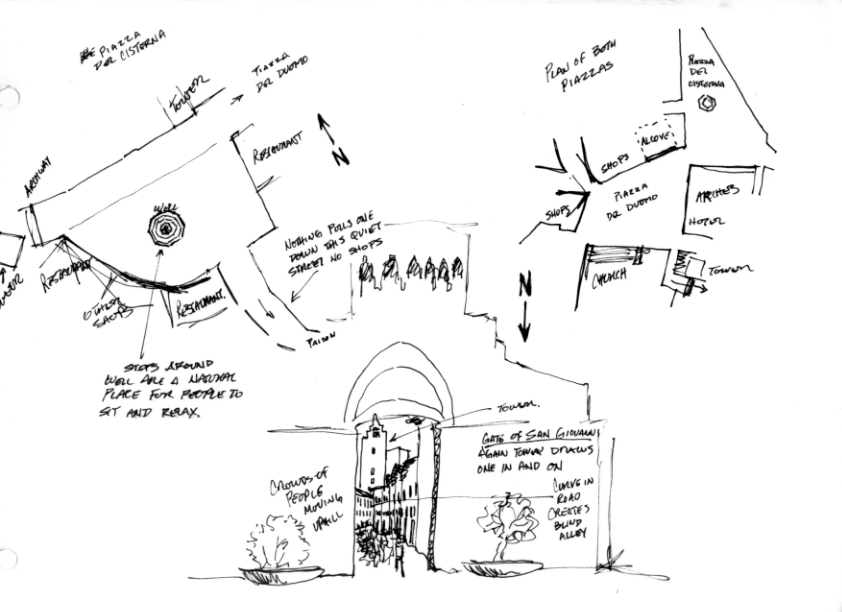 PIAZZA
DEL CISTERNA
TOWER
PIAZZA
DEL DUOMO
N
ARCHWAY
RESTAURANT
WELL
RESTAURANT
OTHER
SHOPS
RESTAURANT
NOTHING PULLS ONE
DOWN THIS QUIET
STREET NO SHOPS
PRISON
STEPS AROUND
WELL ARE A NATURAL
PLACE FOR PEOPLE TO
SIT AND RELAX.
PLAN OF BOTH
PIAZZAS
PIAZZA
DEL
CISTERNA
ALCOVE
SHOPS
PIAZZA
DEL DUOMO
SHOPS
ARCHES
HOTEL
CHURCH
TOWER
N
TOWER.
GATE OF SAN GIOVANNI
AGAIN TOWER DRAWS
ONE IN AND ON
CURVE IN
ROAD
CREATES
BLIND
ALLEY
CROWDS OF
PEOPLE
MOVING
UPHILL